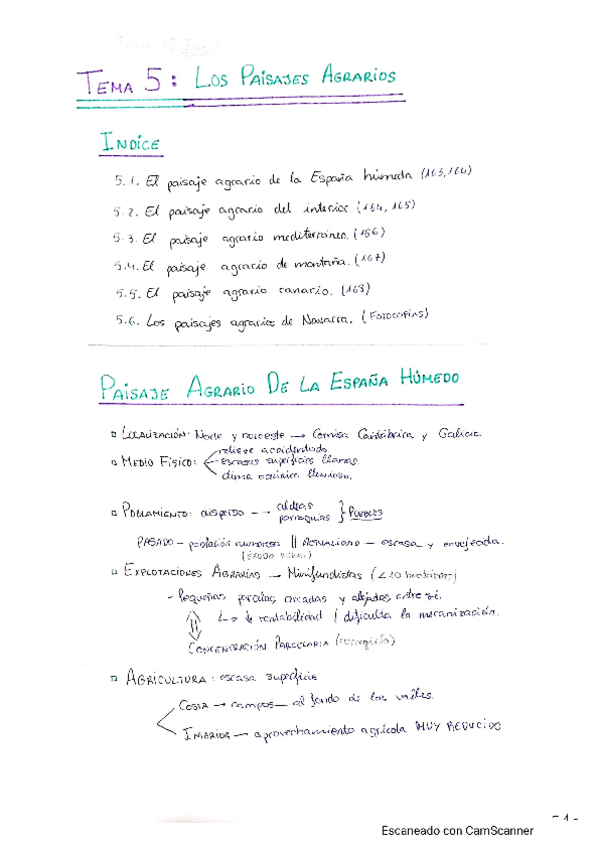 TEMA 5: LOS PAISAJES AGRARIOS
INDICE
5.1. El paisaje agrario de la España húmeda (163,164)
5.2. El paisaje agrario del interior. (164, 165)
5.3. El paisaje agrario mediterráneo. (166)
5.4. El paisaje agrario de montaña. (167)
5.5. El paisaje agrario canario. (168)
5.6. Los paisajes agrarios de Navarra. (FOTOCOPIAS)
PAISAJE AGRARIO DE LA ESPAÑA HÚMEDO
LOCALIZACIÓN: Norte y noroeste → Cornisa Cantábrica y Galicia.
relieve accidentado
MEDIO FÍSICO: escasas superficies llanas.
clima oceánico lluvioso.
POBLAMIENTO: disperso → aldeas
parroquias } PUEBLOS
PASADO - población numerosa || ACTUALIDAD - escasa y envejecida.
(ÉXODO RURAL)
EXPLOTACIONES AGRARIAS → Minifundistas (<10 hectáreas)
- Pequeñas parcelas, cercadas y alejadas entre sí.
↳ rentabilidad / dificulta la mecanización.
CONCENTRACIÓN PARCELARIA
AGRICULTURA: escasa superficie
COSTA → campos - al fondo de los valles.
INTERIOR - aprovechamiento agrícola MUY REDUCIDO
Escaneado con CamScanner